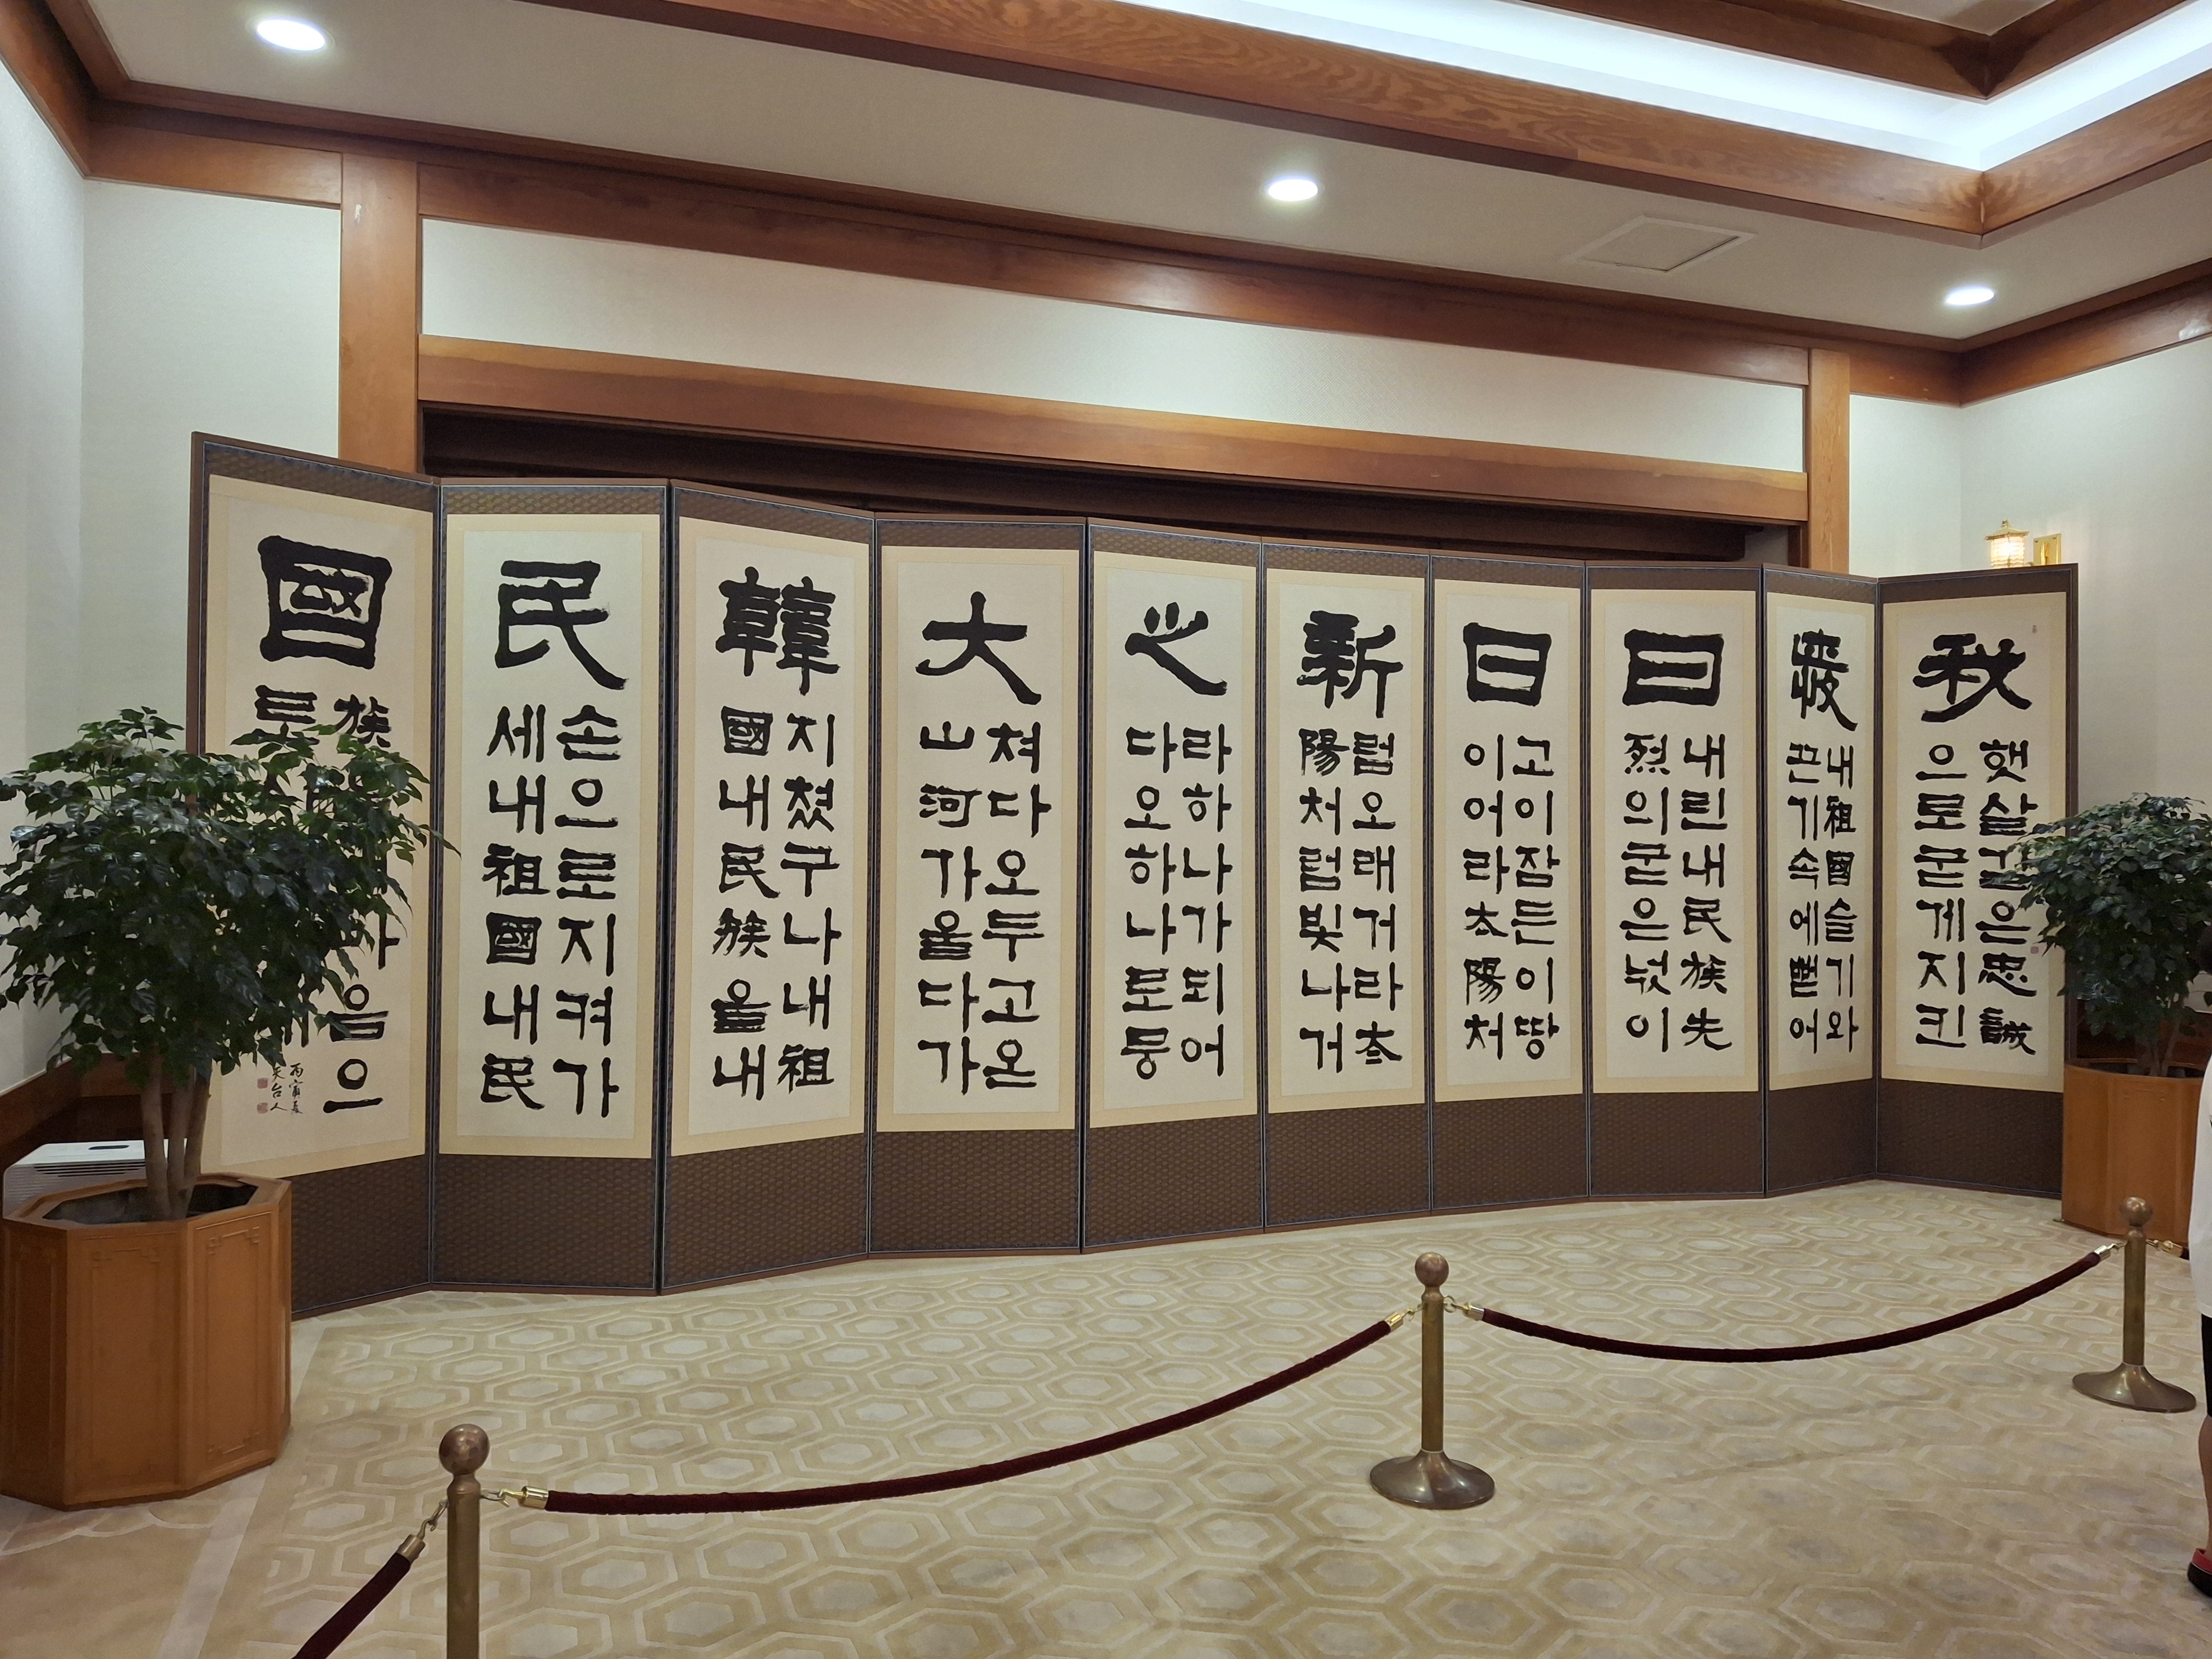 秋
햇살같은忠誠
으로굳게지킨
내祖國슬기와
끈기속에뻗어
日
내린내民族先
烈의굳은넋이
日
고이잠든이땅
이어라太陽처
新
럼오래거라太
陽처럼빛나거
之
라하나가되어
다오하나로뭉
大
쳐다오두고온
山河가울다가
韓
지쳤구나내祖
國내民族을내
民
손으로지켜가
세내祖國내民
國
族 음으
로
丙寅夏
台人